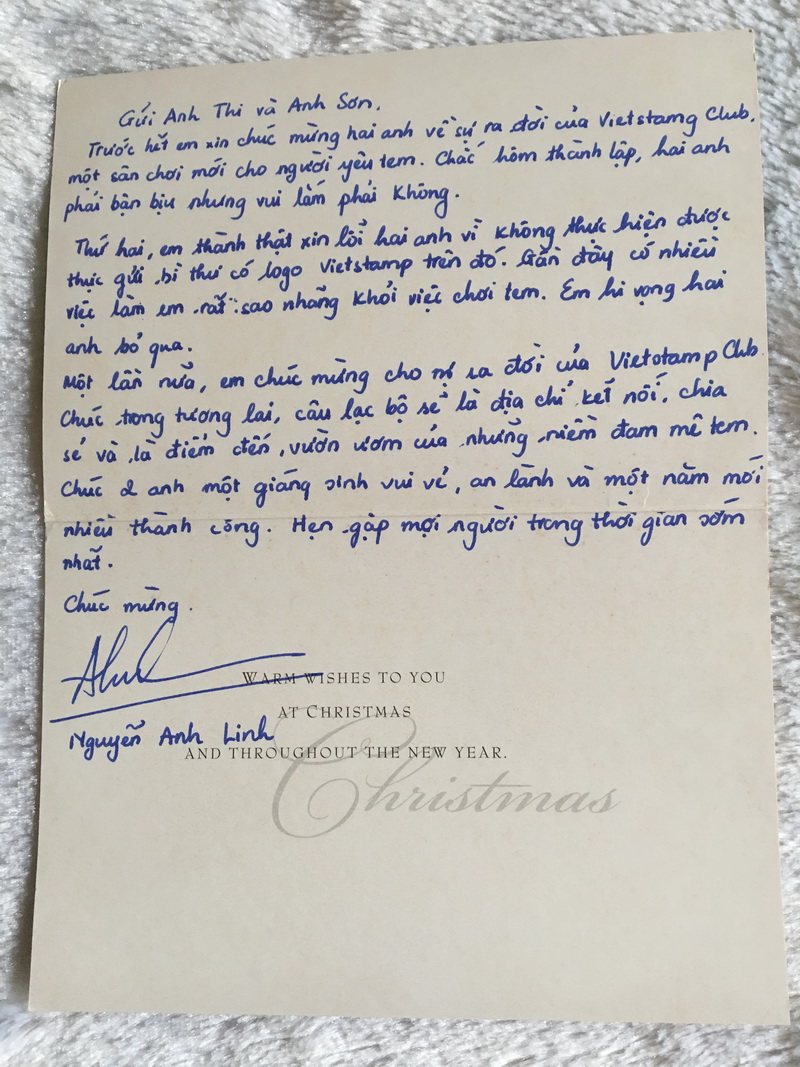 Gửi Anh Thi và Anh Sơn.
Trước hết em xin chúc mừng hai anh về sự ra đời của Vietstamp Club,
một sân chơi mới cho người yêu tem. Chắc hôm thành lập, hai anh
phải bận bịu nhưng vui lắm phải không.
Thứ hai, em thành thật xin lỗi hai anh vì không thực hiện được
thực gửi bì thư có logo Vietstamp trên đó. Gần đây có nhiều
việc làm em rất sao nhãng khỏi việc chơi tem. Em hi vọng hai
anh bỏ qua.
Một lần nữa, em chúc mừng cho sự ra đời của Vietstamp Club
Chúc trong tương lai, câu lạc bộ sẽ là địa chỉ kết nối, chia
sẻ và là điểm đến, vườn ươm của những niềm đam mê tem.
Chúc 2 anh một giáng sinh vui vẻ, an lành và một năm mới
nhiều thành công. Hẹn gặp mọi người trong thời gian sớm
nhất.
Chúc mừng.
WARM WISHES TO YOU
AT CHRISTMAS
Nguyễn Anh Linh
AND THROUGHOUT THE NEW YEAR.
Christmas